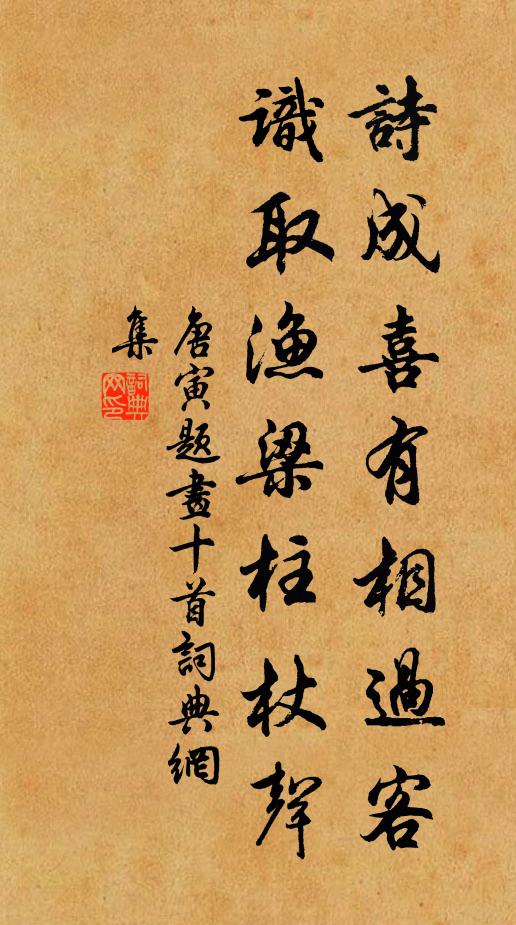 詩成喜有相過客
識取漁梁柱杖聲
唐寅題畫十首詞典網
集
詞典網印